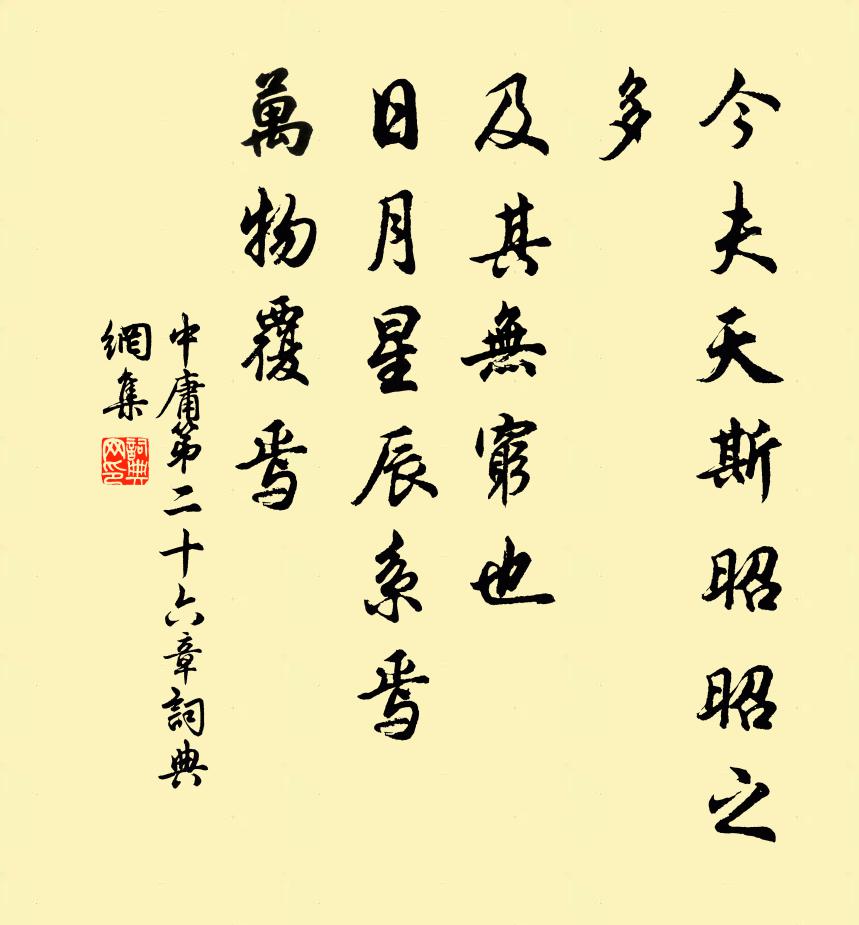 今夫天斯昭昭之
多
及其無窮也
日月星辰系焉
萬物覆焉
中庸第二十六章詞典
網集
詞典
网印